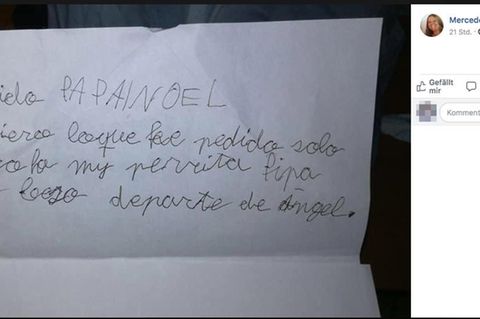 PAPAINOEL
iero loque pedido solo
my perrita Pipa
departe de Ángel.
Mercede
21 Std. ·
Gefällt
mir
Komment